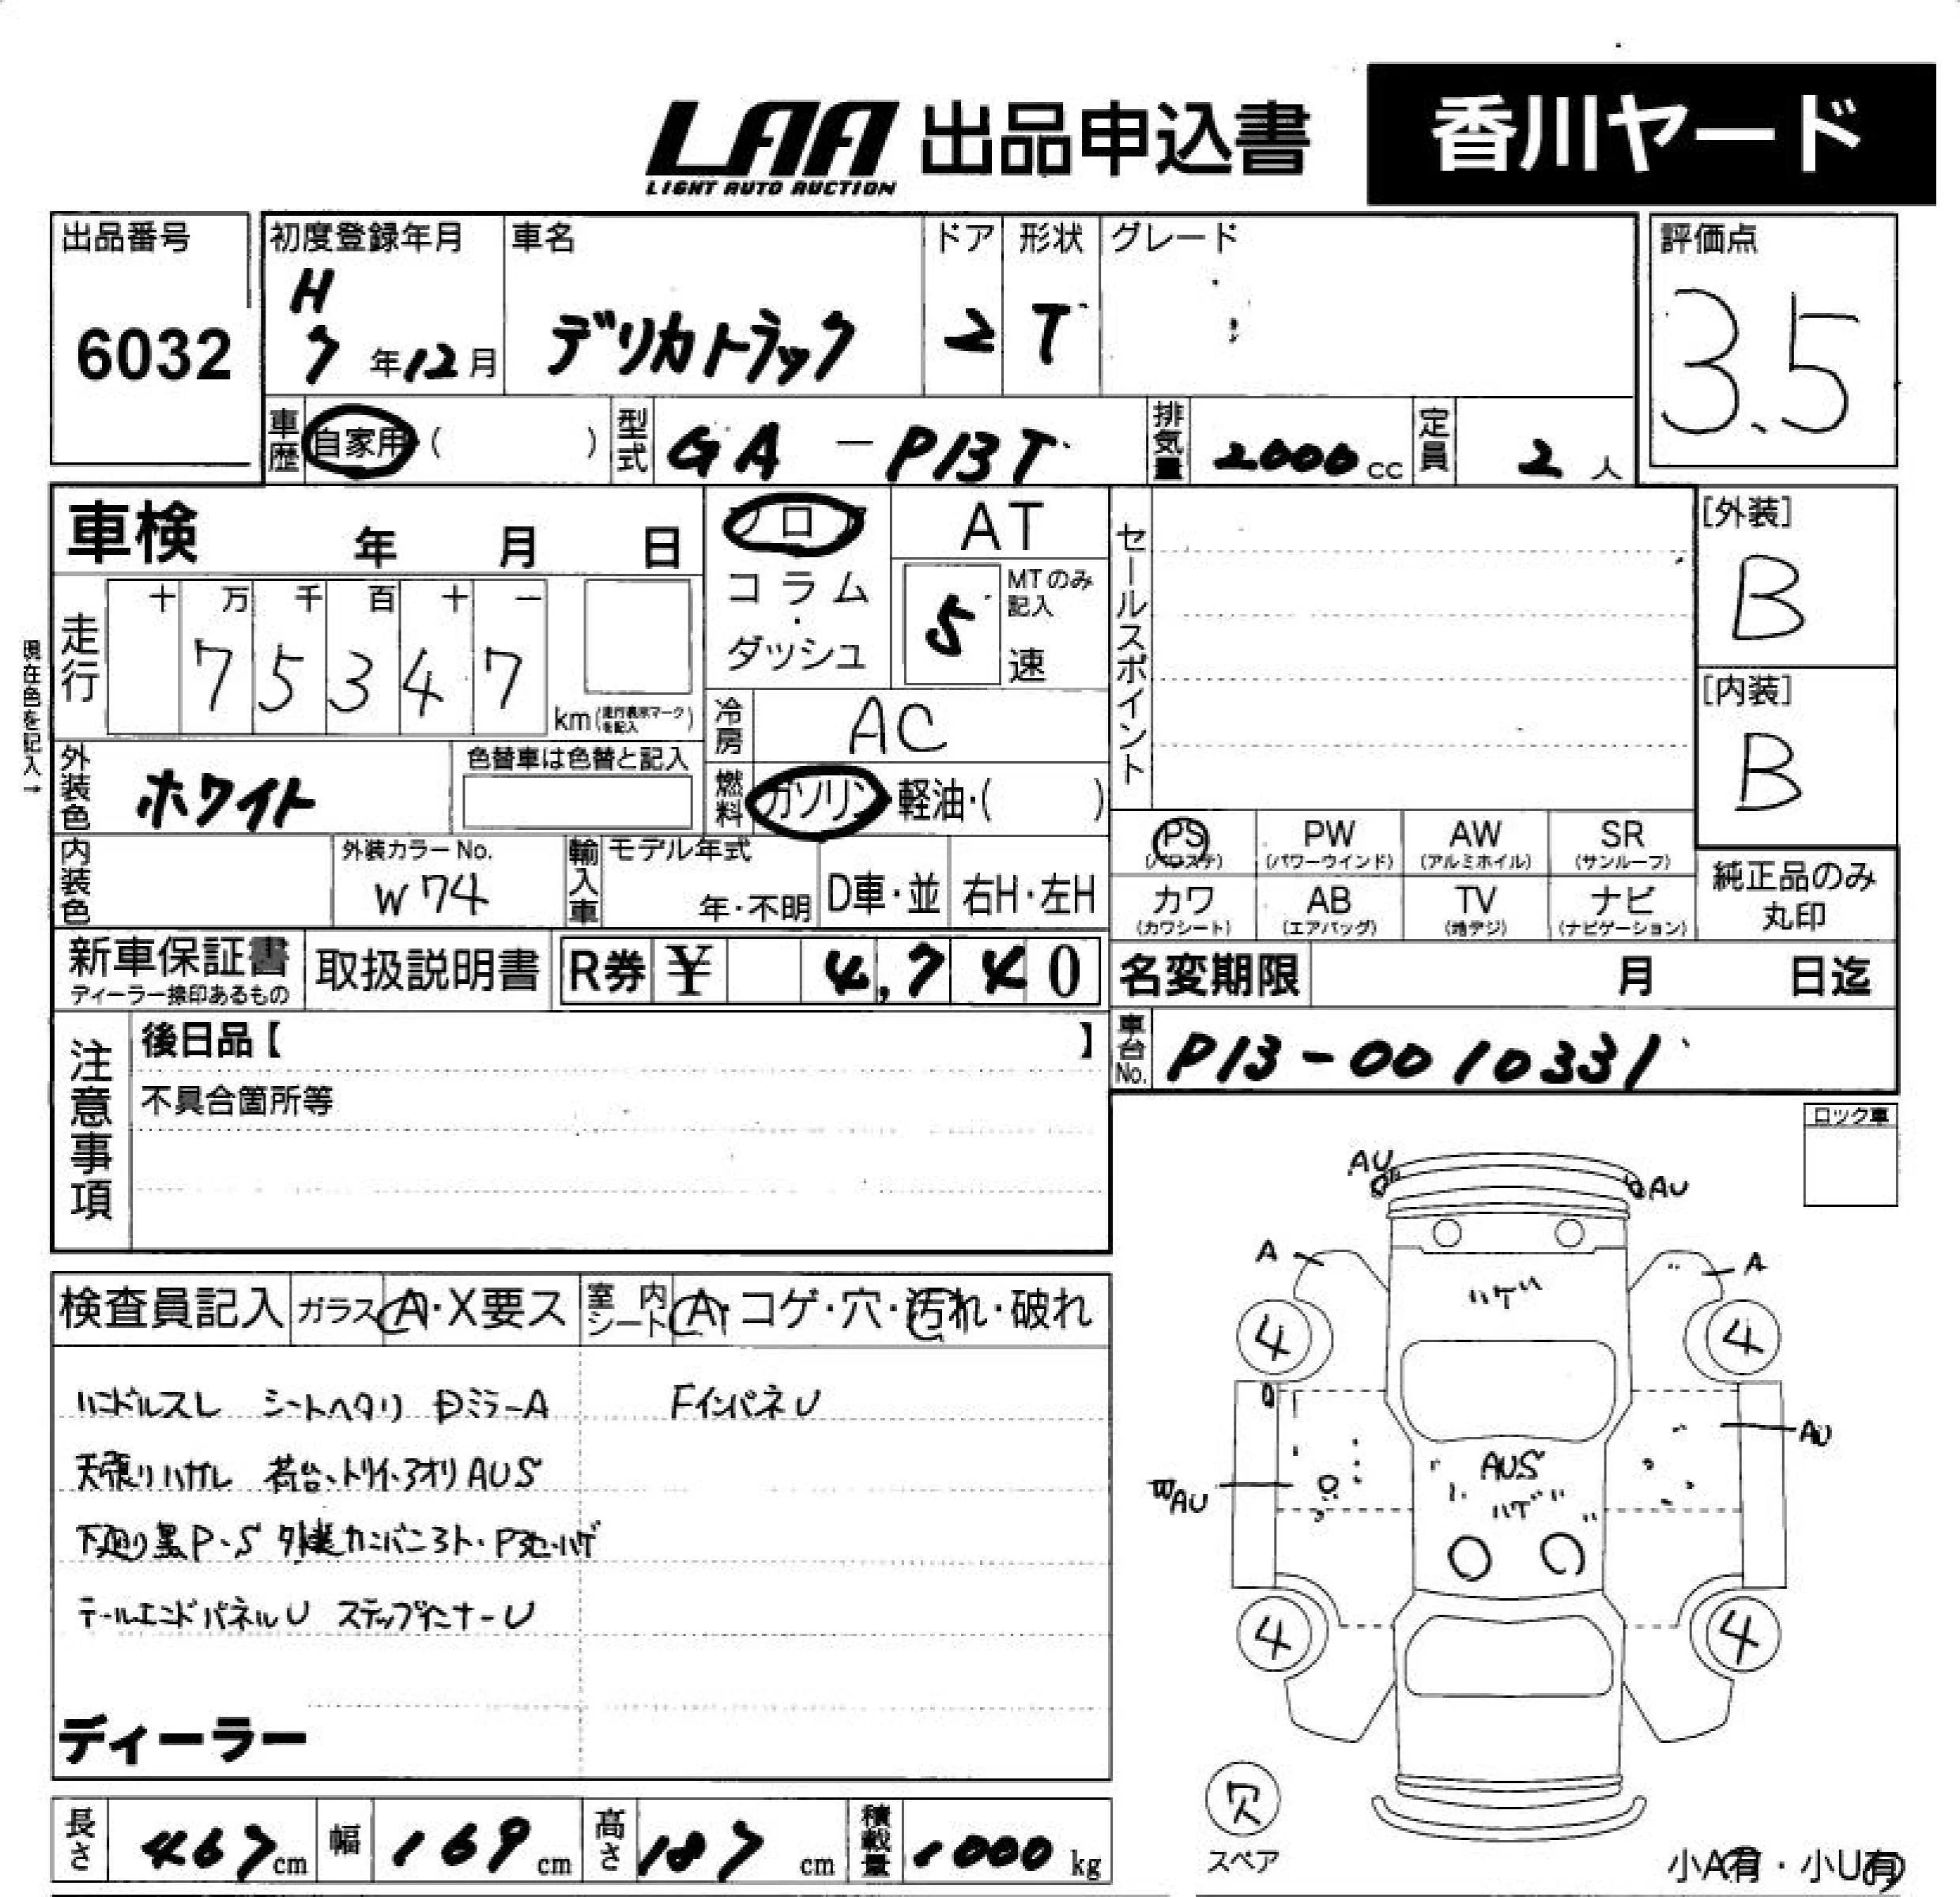 LAA 出品申込書 香川ヤード
LIGHT AUTO AUCTION
出品番号 6032
初度登録年月 H 7年12月
車名 デリカトラック
ドア 2
形状 T
グレード
評価点 3.5
車歴 自家用 ( )
型式 GA - P13T
排気量 2000cc
定員 2人
車検 年 月 日
フロア AT
コラム・ダッシュ
5 MTのみ記入 速
走行 十 万 千 百 十 一
75347 km (走行表示マークを記入)
現在色を記入→
冷房 AC
外装色 ホワイト
色替車は色替と記入
燃料 ガソリン・軽油・( )
内装色
外装カラーNo. W74
輸入車 モデル年式 年・不明 D車・並 右H・左H
新車保証書 ディーラー捺印あるもの
取扱説明書
R券 ¥ 4,740
セールスポイント
[外装] B
[内装] B
PS (パワステ) PW (パワーウインド) AW (アルミホイル) SR (サンルーフ)
カワ (カワシート) AB (エアバッグ) TV (地デジ) ナビ (ナビゲーション)
純正品のみ丸印
名変期限 月 日迄
車台No. P13-0010331
注意事項
後日品【 】
不具合箇所等
ロック車
検査員記入 ガラス A・X要ス 室内シート A・コゲ・穴・汚れ・破れ
ハンドルスレ シートヘタリ Dミラ-A FインパネU
天張りハガレ 荷台、トリイ、アオリAUS
下廻り黒P・S
テールエンドパネルU ステップインナーU
ディーラー
AU AU
A A
ハゲ
4 4
AU
AUS
WAU
ハゲ
4 4
欠
スペア
小A有・小U有
長さ 467cm 幅 169cm 高さ 187cm 積載量 1000kg